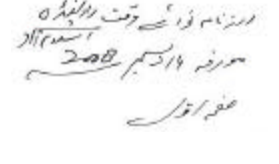 روزنامہ نوائے وقت راولپنڈی
اسلام آباد
مورخہ 14 دسمبر 2008
صفحہ اول